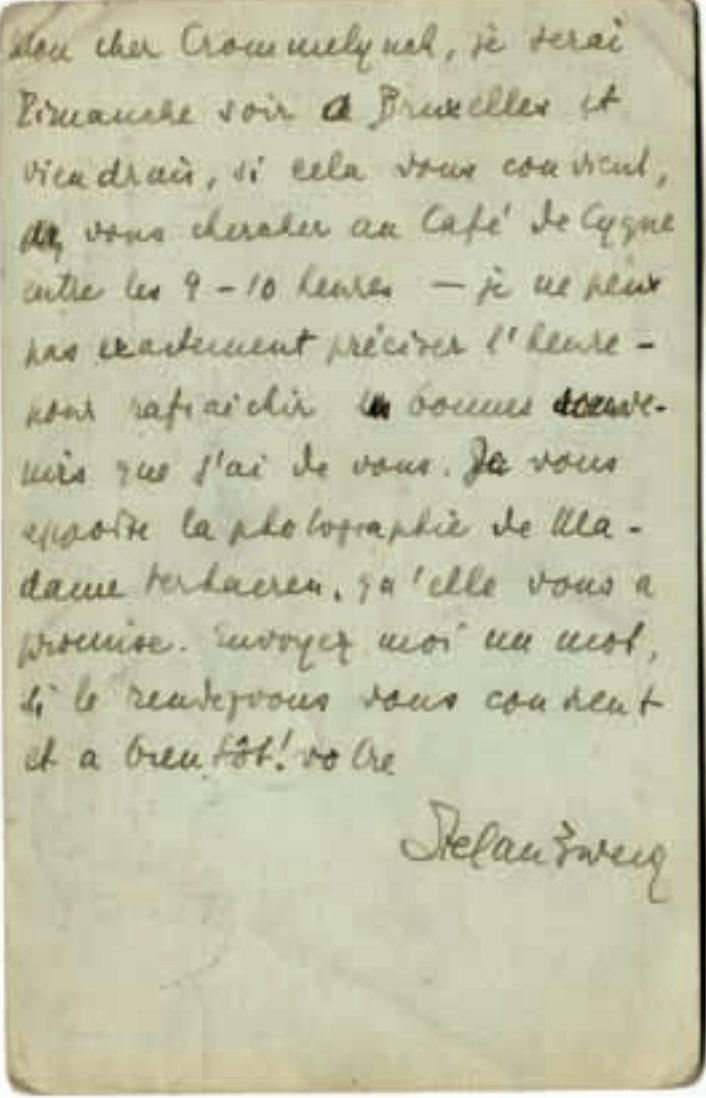 Mon cher Crommelynck, je serai
Dimanche soir a Bruxelles et
viendrais, si cela vous convient,
vous chercher au Café de Cygne
entre les 9-10 heures — je ne peux
pas exactement préciser l'heure -
pour rafraichir les bonnes souve-
nirs que j'ai de vous. Je vous
apporte la photographie de Ma-
dame Verhaeren, qu'elle vous a
promise. Envoyez moi un mot,
si le rendezvous vous convient
et a bientôt! votre
Stefan Zweig